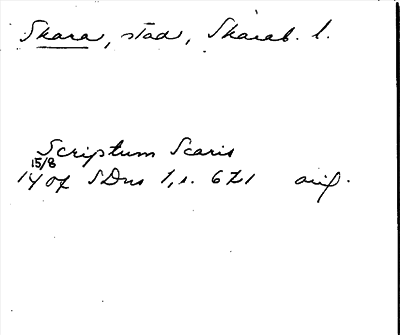 Skara, stad, Skarab. l.
Scriptum Scaris
15/8
1407 SDns 1, s. 621 orig.